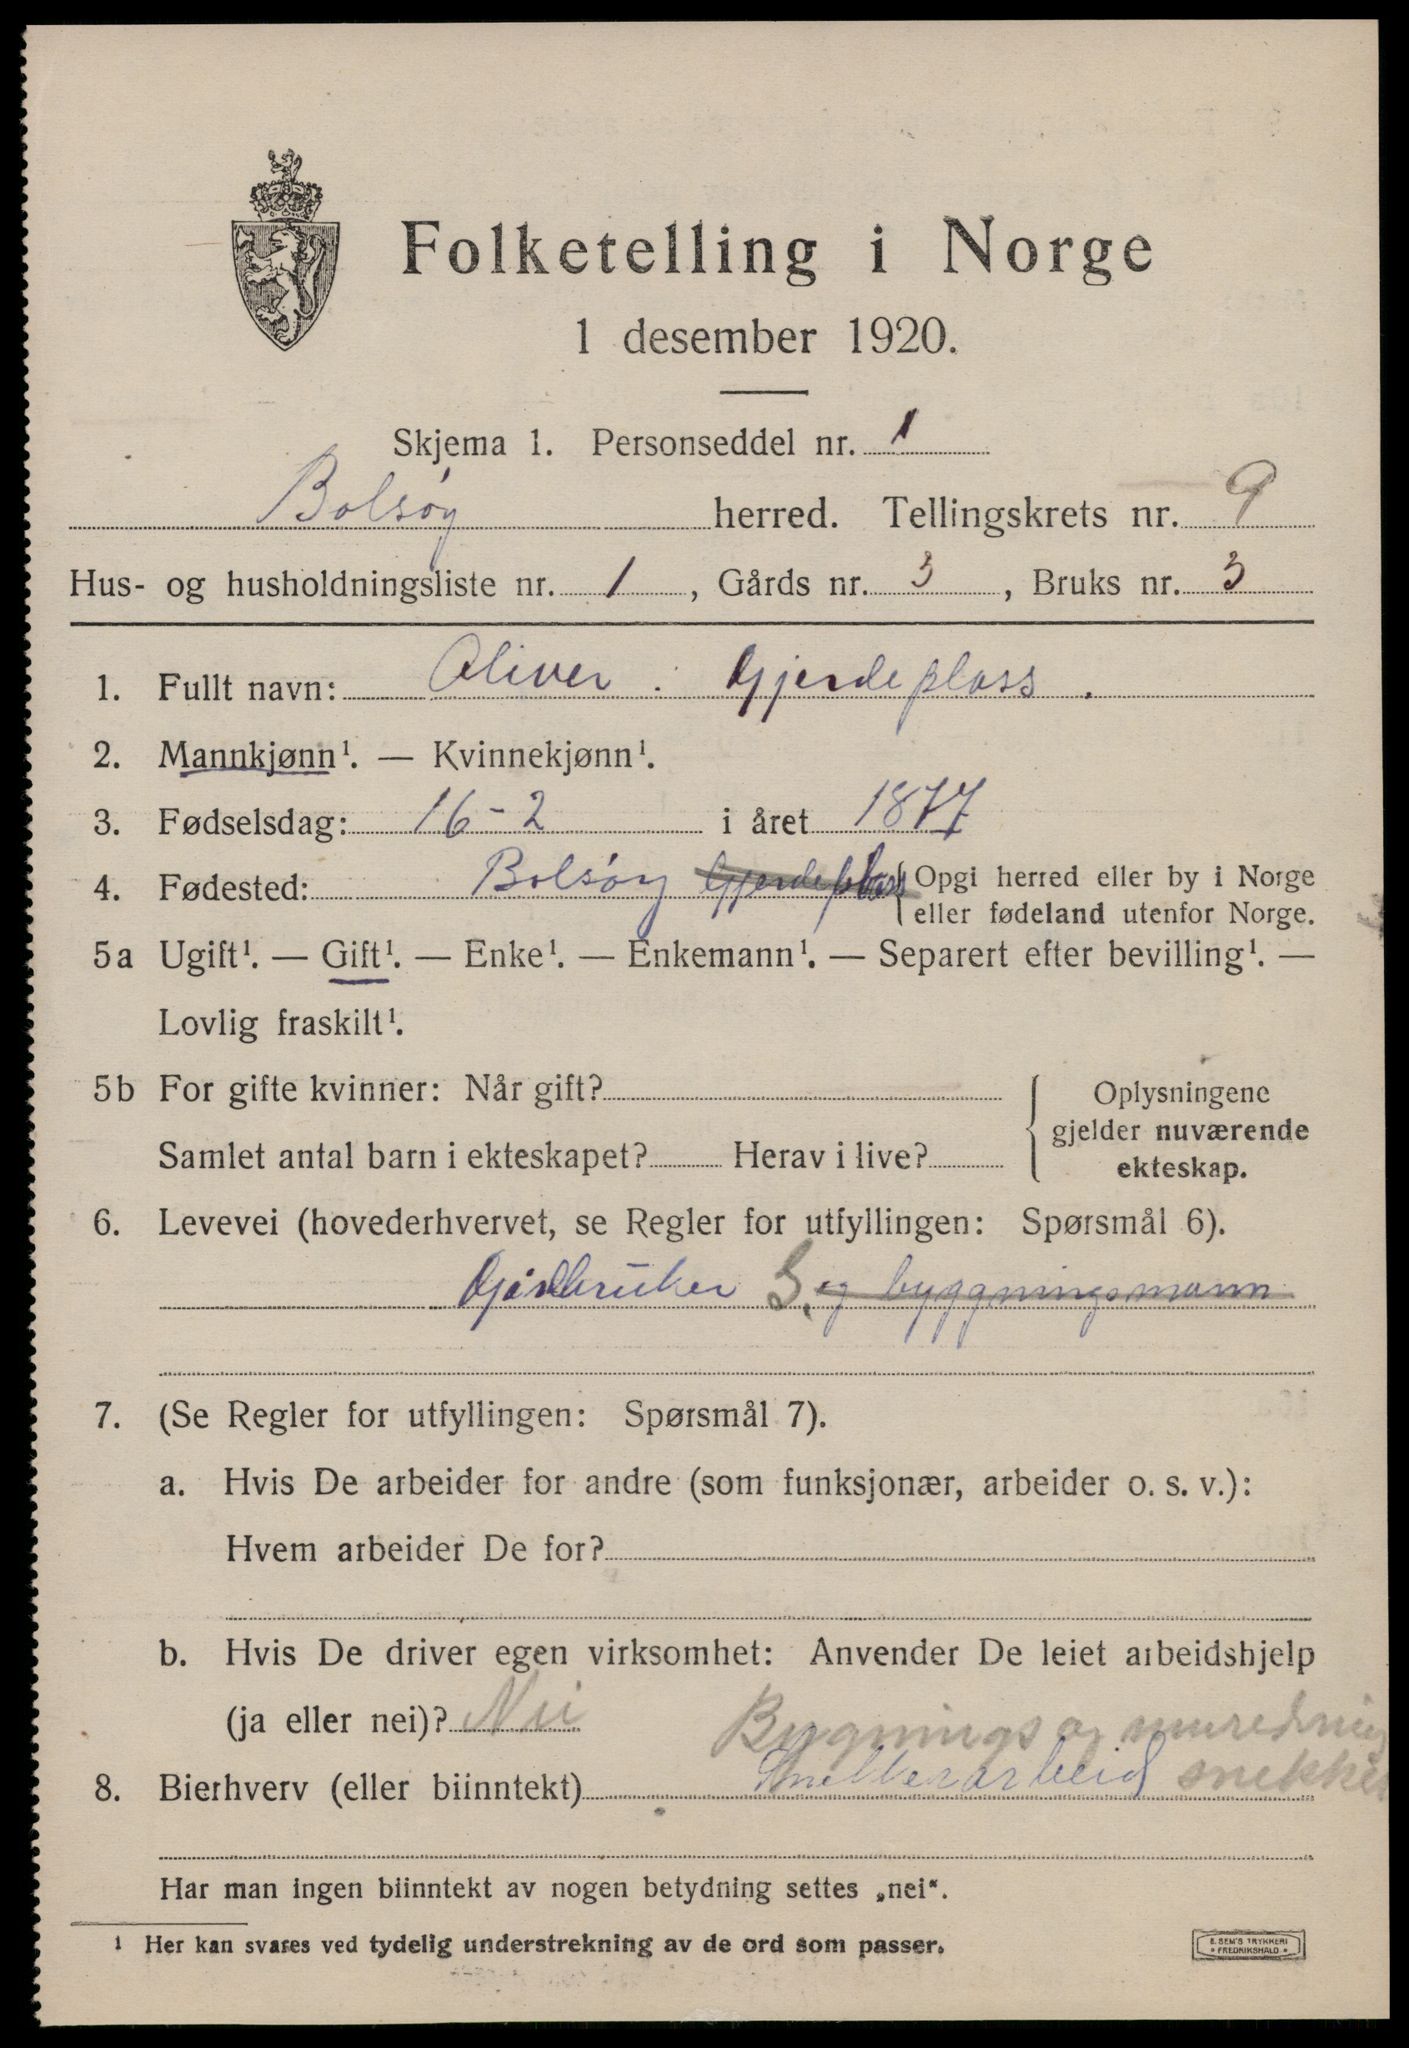 Folketelling i Norge
1 desember 1920.
Skjema 1. Personseddel nr. 1
Bolsøy herred. Tellingskrets nr. 9
Hus- og husholdningsliste nr. 1, Gårds nr. 3, Bruks nr. 3
1. Fullt navn: Oliver Gjerdeplass.
2. Mannkjønn¹. — Kvinnekjønn¹.
3. Fødselsdag: 16-2 i året 1877
4. Fødested: Bolsøy Gjerdeplass { Opgi herred eller by i Norge
eller fødeland utenfor Norge.
5a Ugift¹. — Gift¹. — Enke¹. — Enkemann¹. — Separert efter bevilling¹. —
Lovlig fraskilt¹.
5b For gifte kvinner: Når gift? { Oplysningene
gjelder nuværende
Samlet antal barn i ekteskapet? Herav i live?
ekteskap.
6. Levevei (hovederhvervet, se Regler for utfyllingen: Spørsmål 6).
Gårdbruker S. og byggningsmann
7. (Se Regler for utfyllingen: Spørsmål 7).
a. Hvis De arbeider for andre (som funksjonær, arbeider o. s. v.):
Hvem arbeider De for?
b. Hvis De driver egen virksomhet: Anvender De leiet arbeidshjelp
(ja eller nei)? Nei
Bygnings og
8. Bierhverv (eller biinntekt) Snekkerarbeid snekker
Har man ingen biinntekt av nogen betydning settes „nei“.
¹ Her kan svares ved tydelig understrekning av de ord som passer.
E. SEM'S TRYKKERI
FREDRIKSHALD